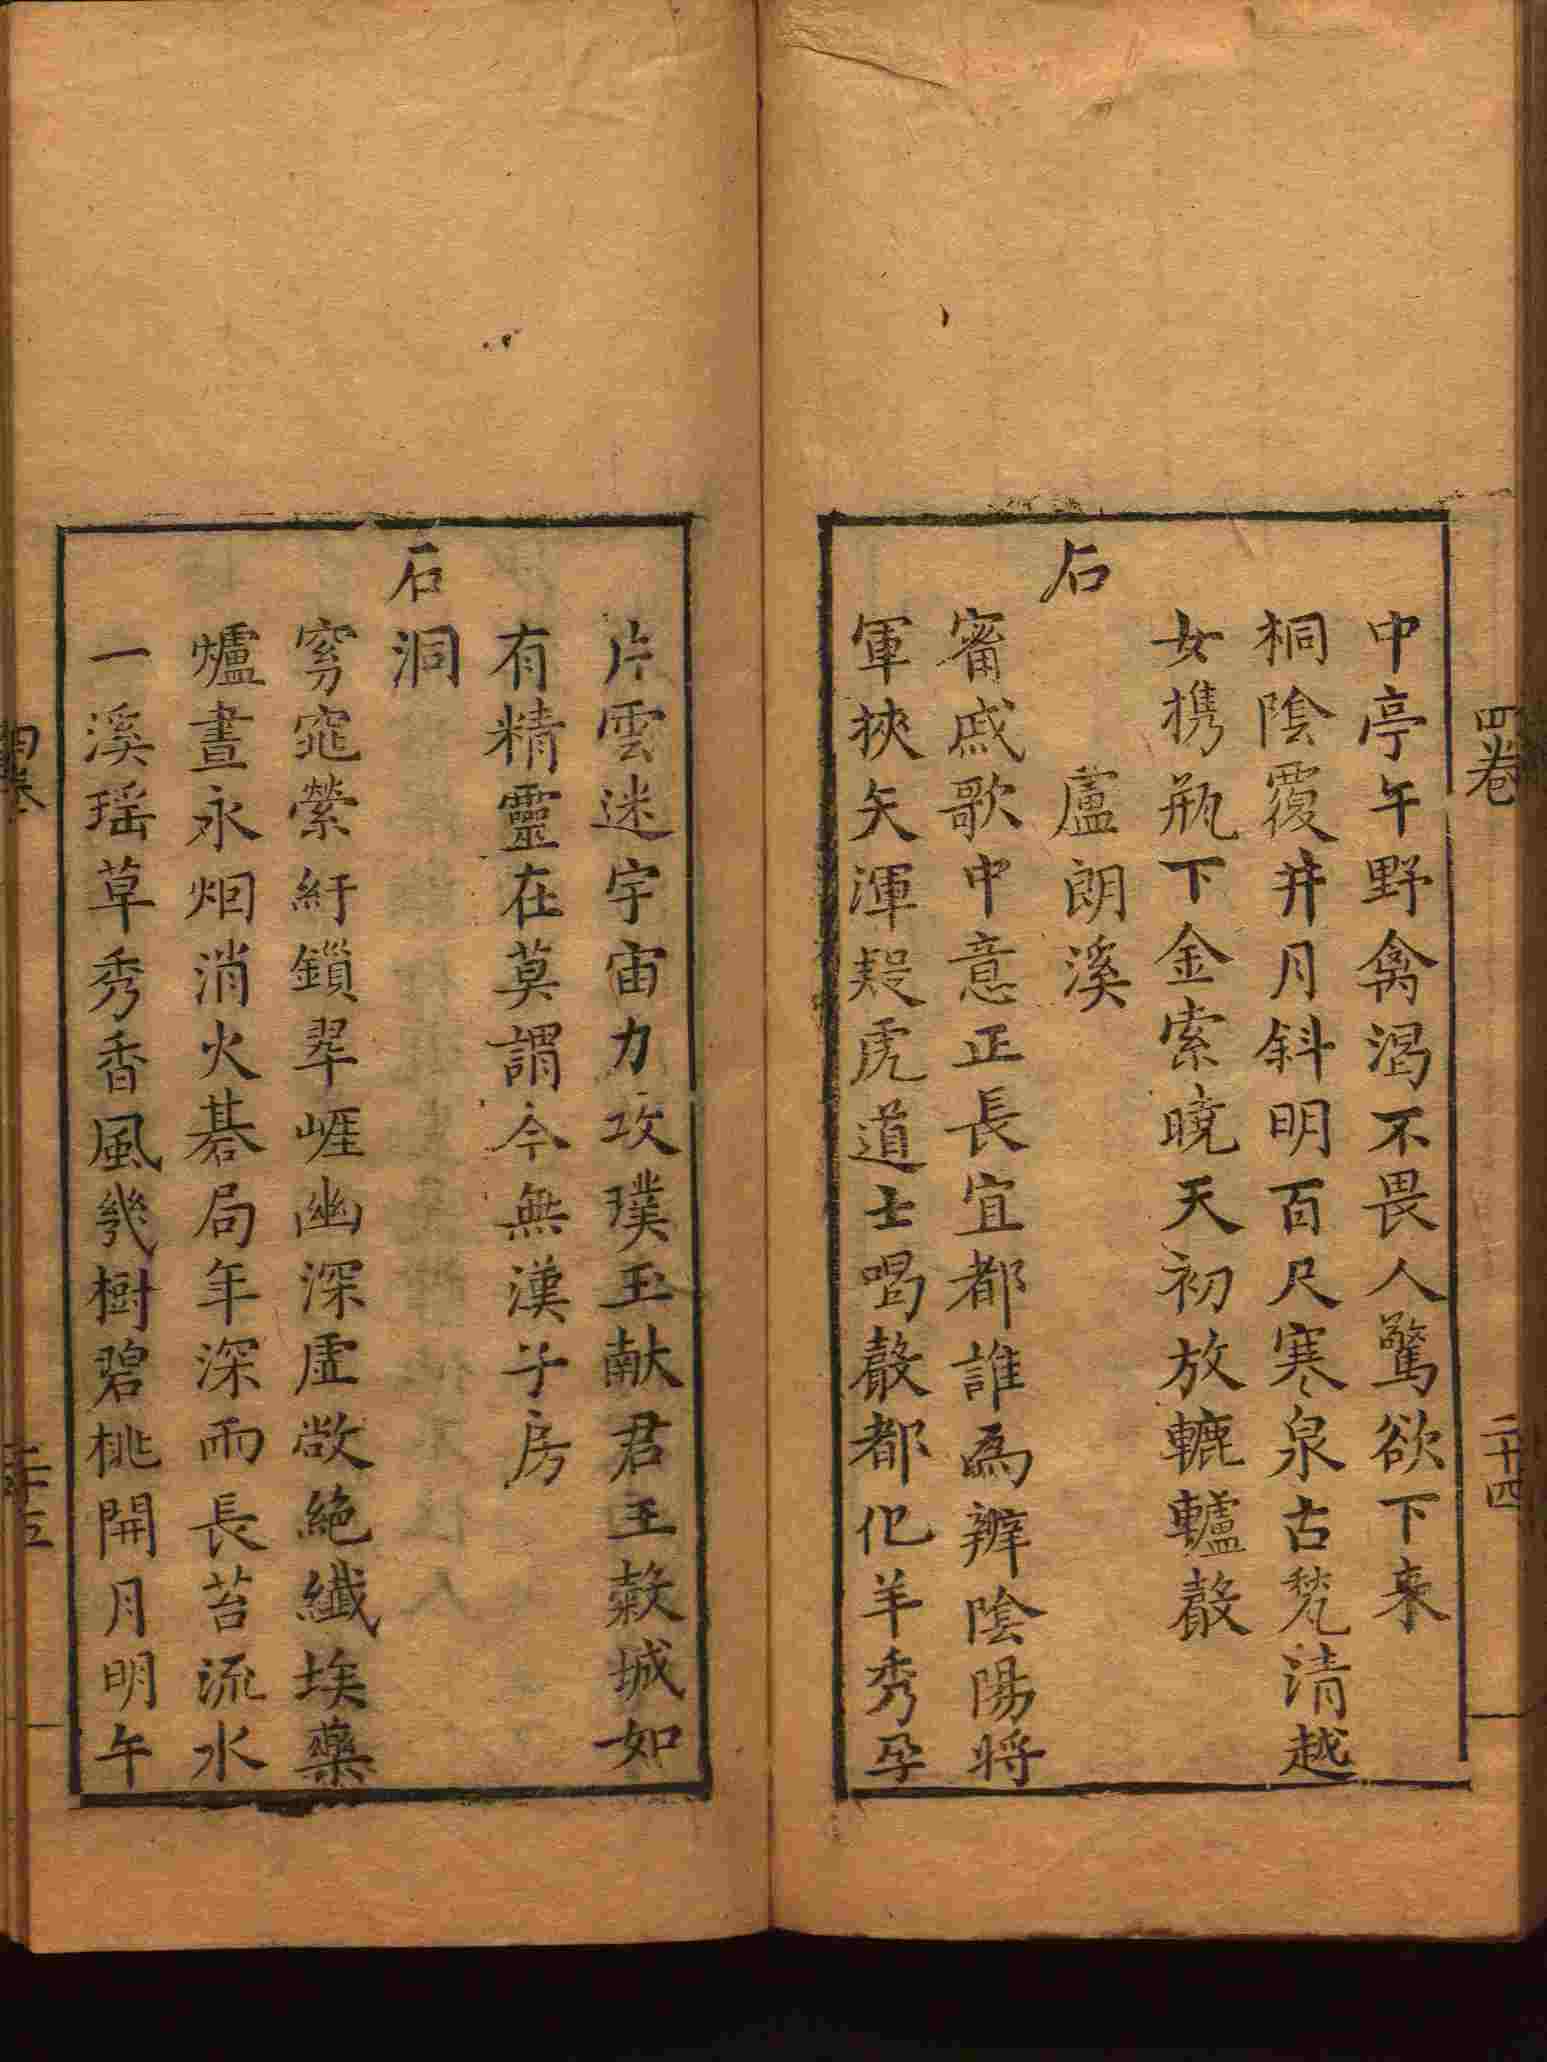 四卷
二十四
中亭午野禽渴不畏人驚欲下来
桐陰覆井月斜明百尺寒泉古甃清越
女携瓶下金索曉天初放轆轤聲
石
盧朗溪
甯戚歌中意正長宜都誰為辨陰陽將
軍挾矢渾疑虎道士喝聲都化羊秀孕
片雲迷宇宙力攻璞玉献君王榖城如
有精靈在莫謂今無漢子房
石洞
窈窕縈紆鎖翠崕幽深虚敞絶纖埃藥
爐晝永烟消火碁局年深雨長苔流水
一溪瑶草秀香風幾樹碧桃開月明午
四卷
二十五